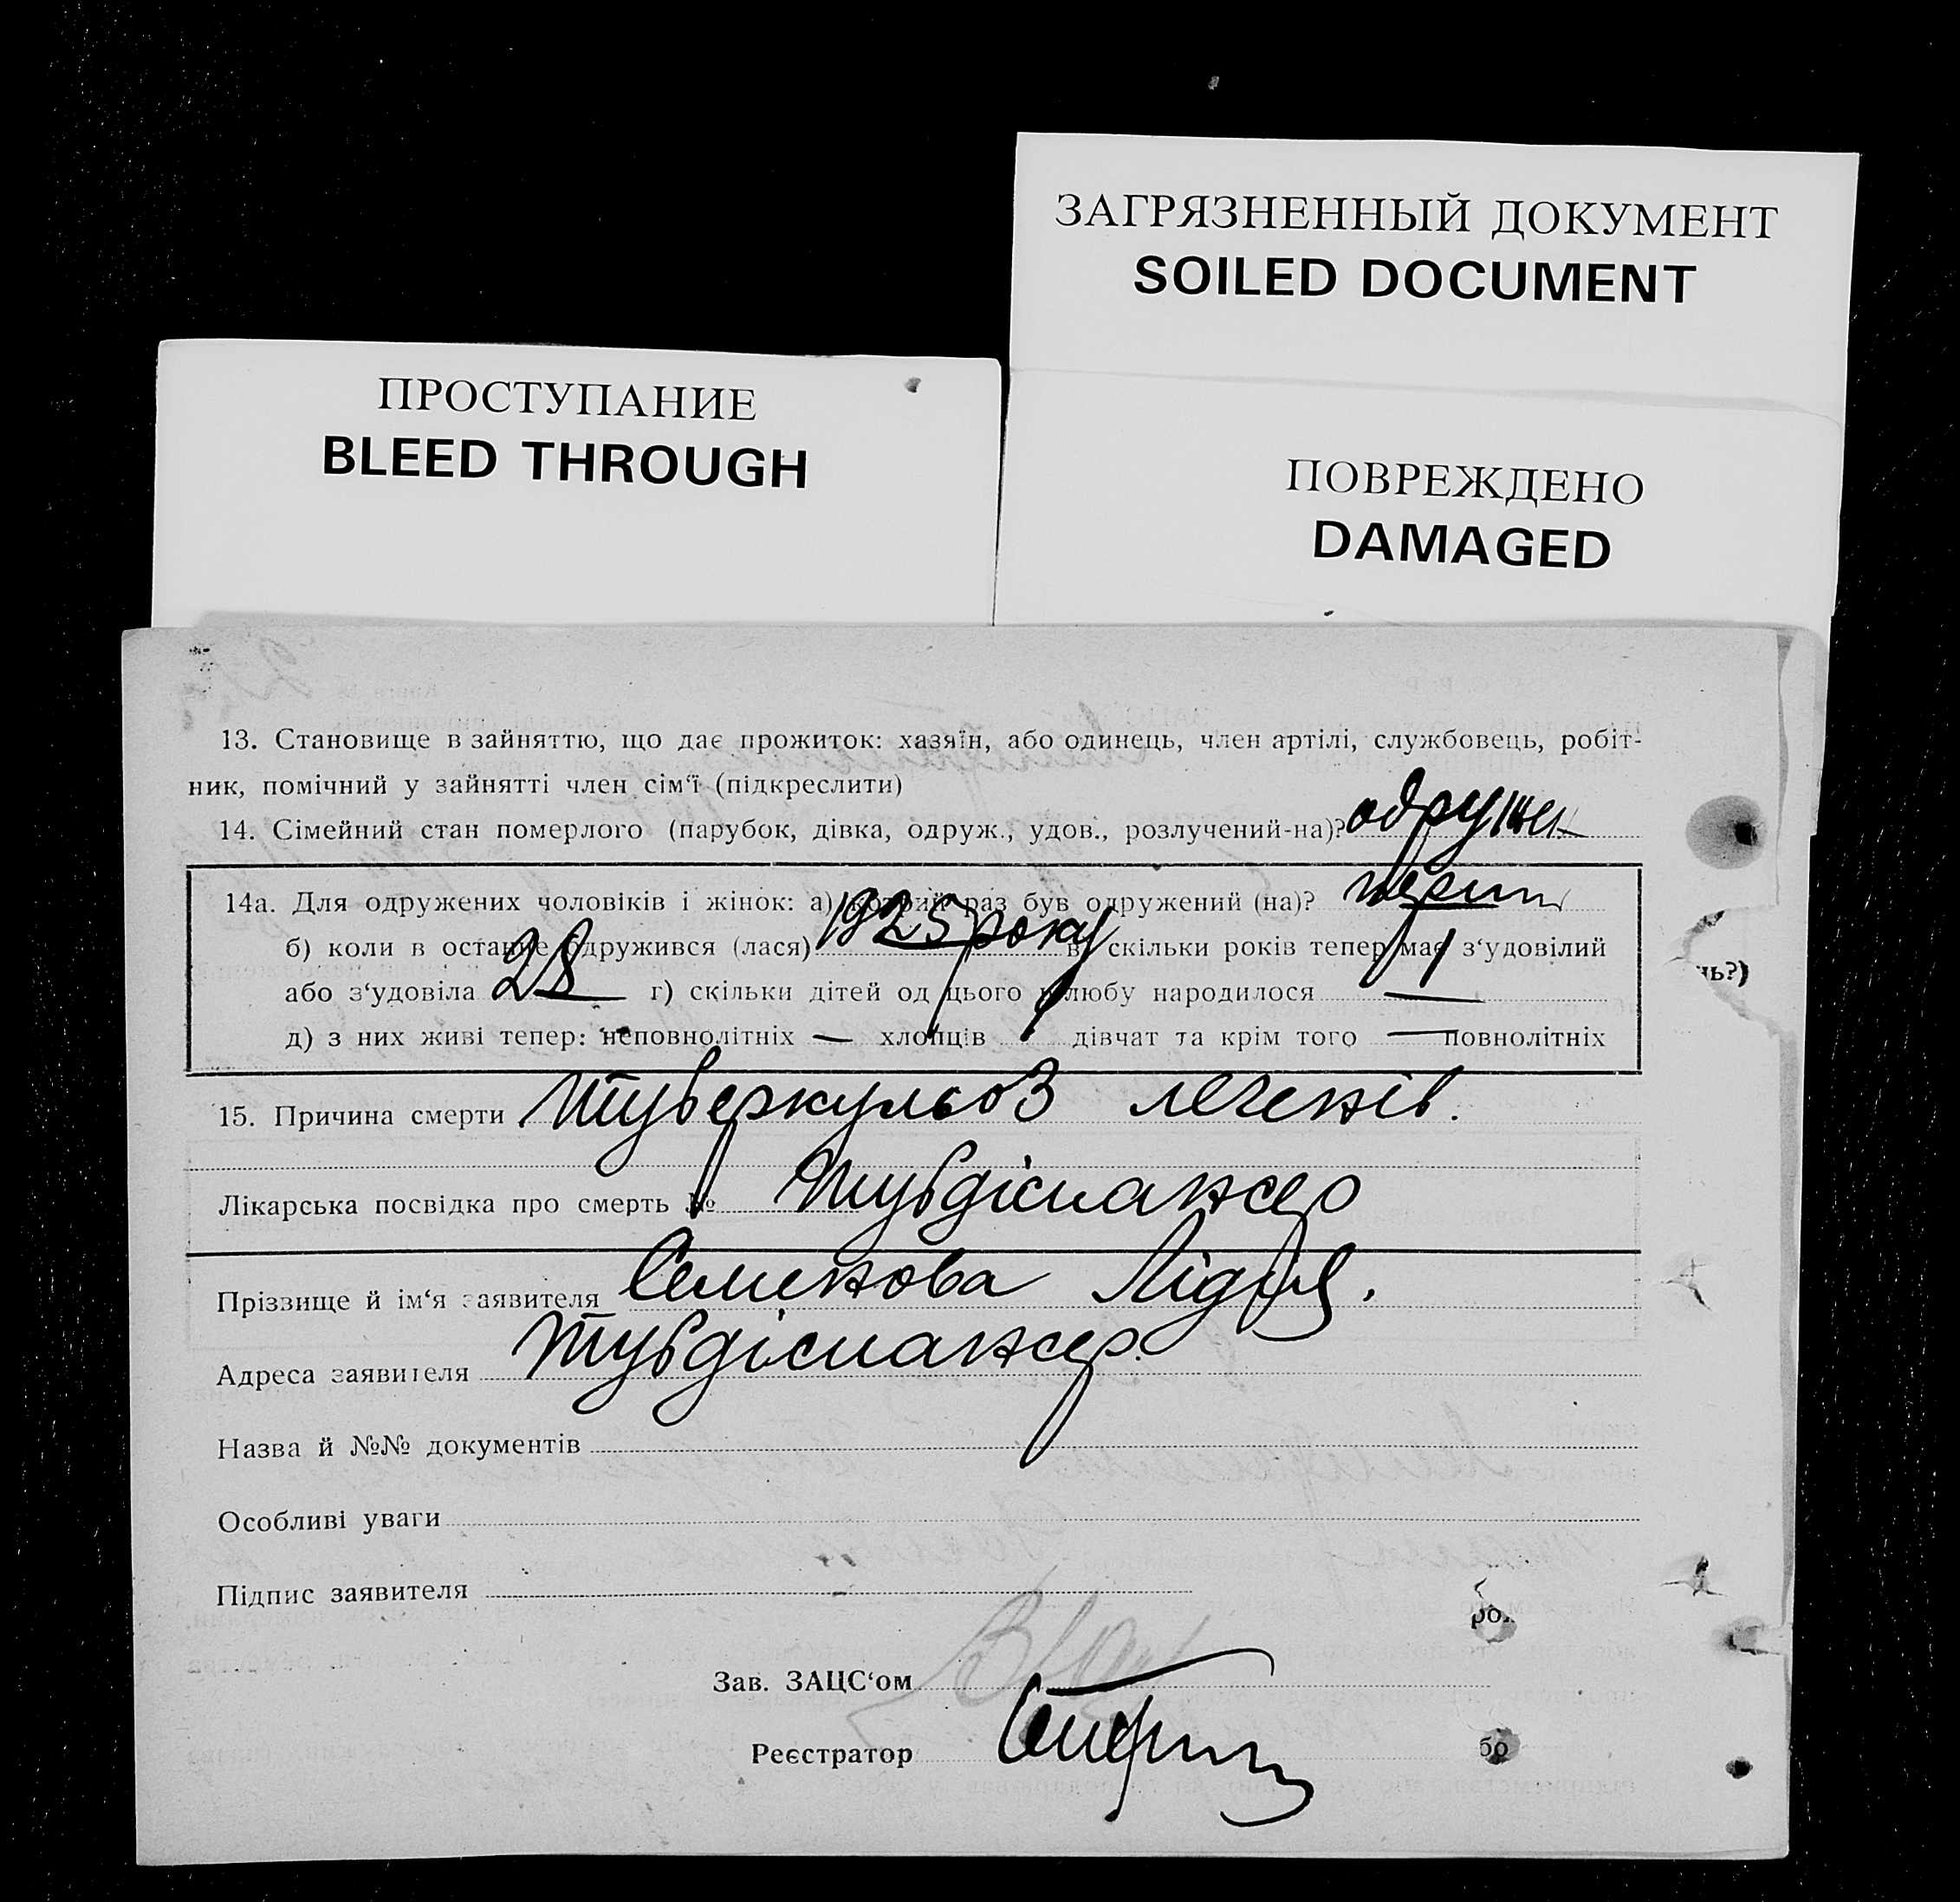 ЗАГРЯЗНЕННЫЙ ДОКУМЕНТ
SOILED DOCUMENT
ПРОСТУПАНИЕ
BLEED THROUGH
ПОВРЕЖДЕНО
DAMAGED
13. Становище в зайняттю, що дає прожиток: хазяїн, або одинець, член артілі, службовець, робіт-
ник, помічний у зайнятті член сім‘ї (підкреслити)
14. Сімейний стан померлого (парубок, дівка, одруж., удов., розлучений-на)? одружен
14а. Для одружених чоловіків і жінок: а) котрий раз був одружений (на)? перший
б) коли в останнє одружився (лася) 1925 року в) скільки років тепер має з‘удовілий
або з‘удовіла 28 г) скільки дітей од цього шлюбу народилося —
д) з них живі тепер: неповнолітніх — хлопців дівчат та крім того — повнолітніх
ь?)
15. Причина смерти туберкульоз легенів.
Лікарська посвідка про смерть № тубдіспансер
Прізвище й ім‘я заявителя Семенова Лідія.
Адреса заявителя тубдіспансер.
Назва й №№ документів
Особливі уваги
Підпис заявителя
Зав. ЗАЦС‘ом
Реєстратор